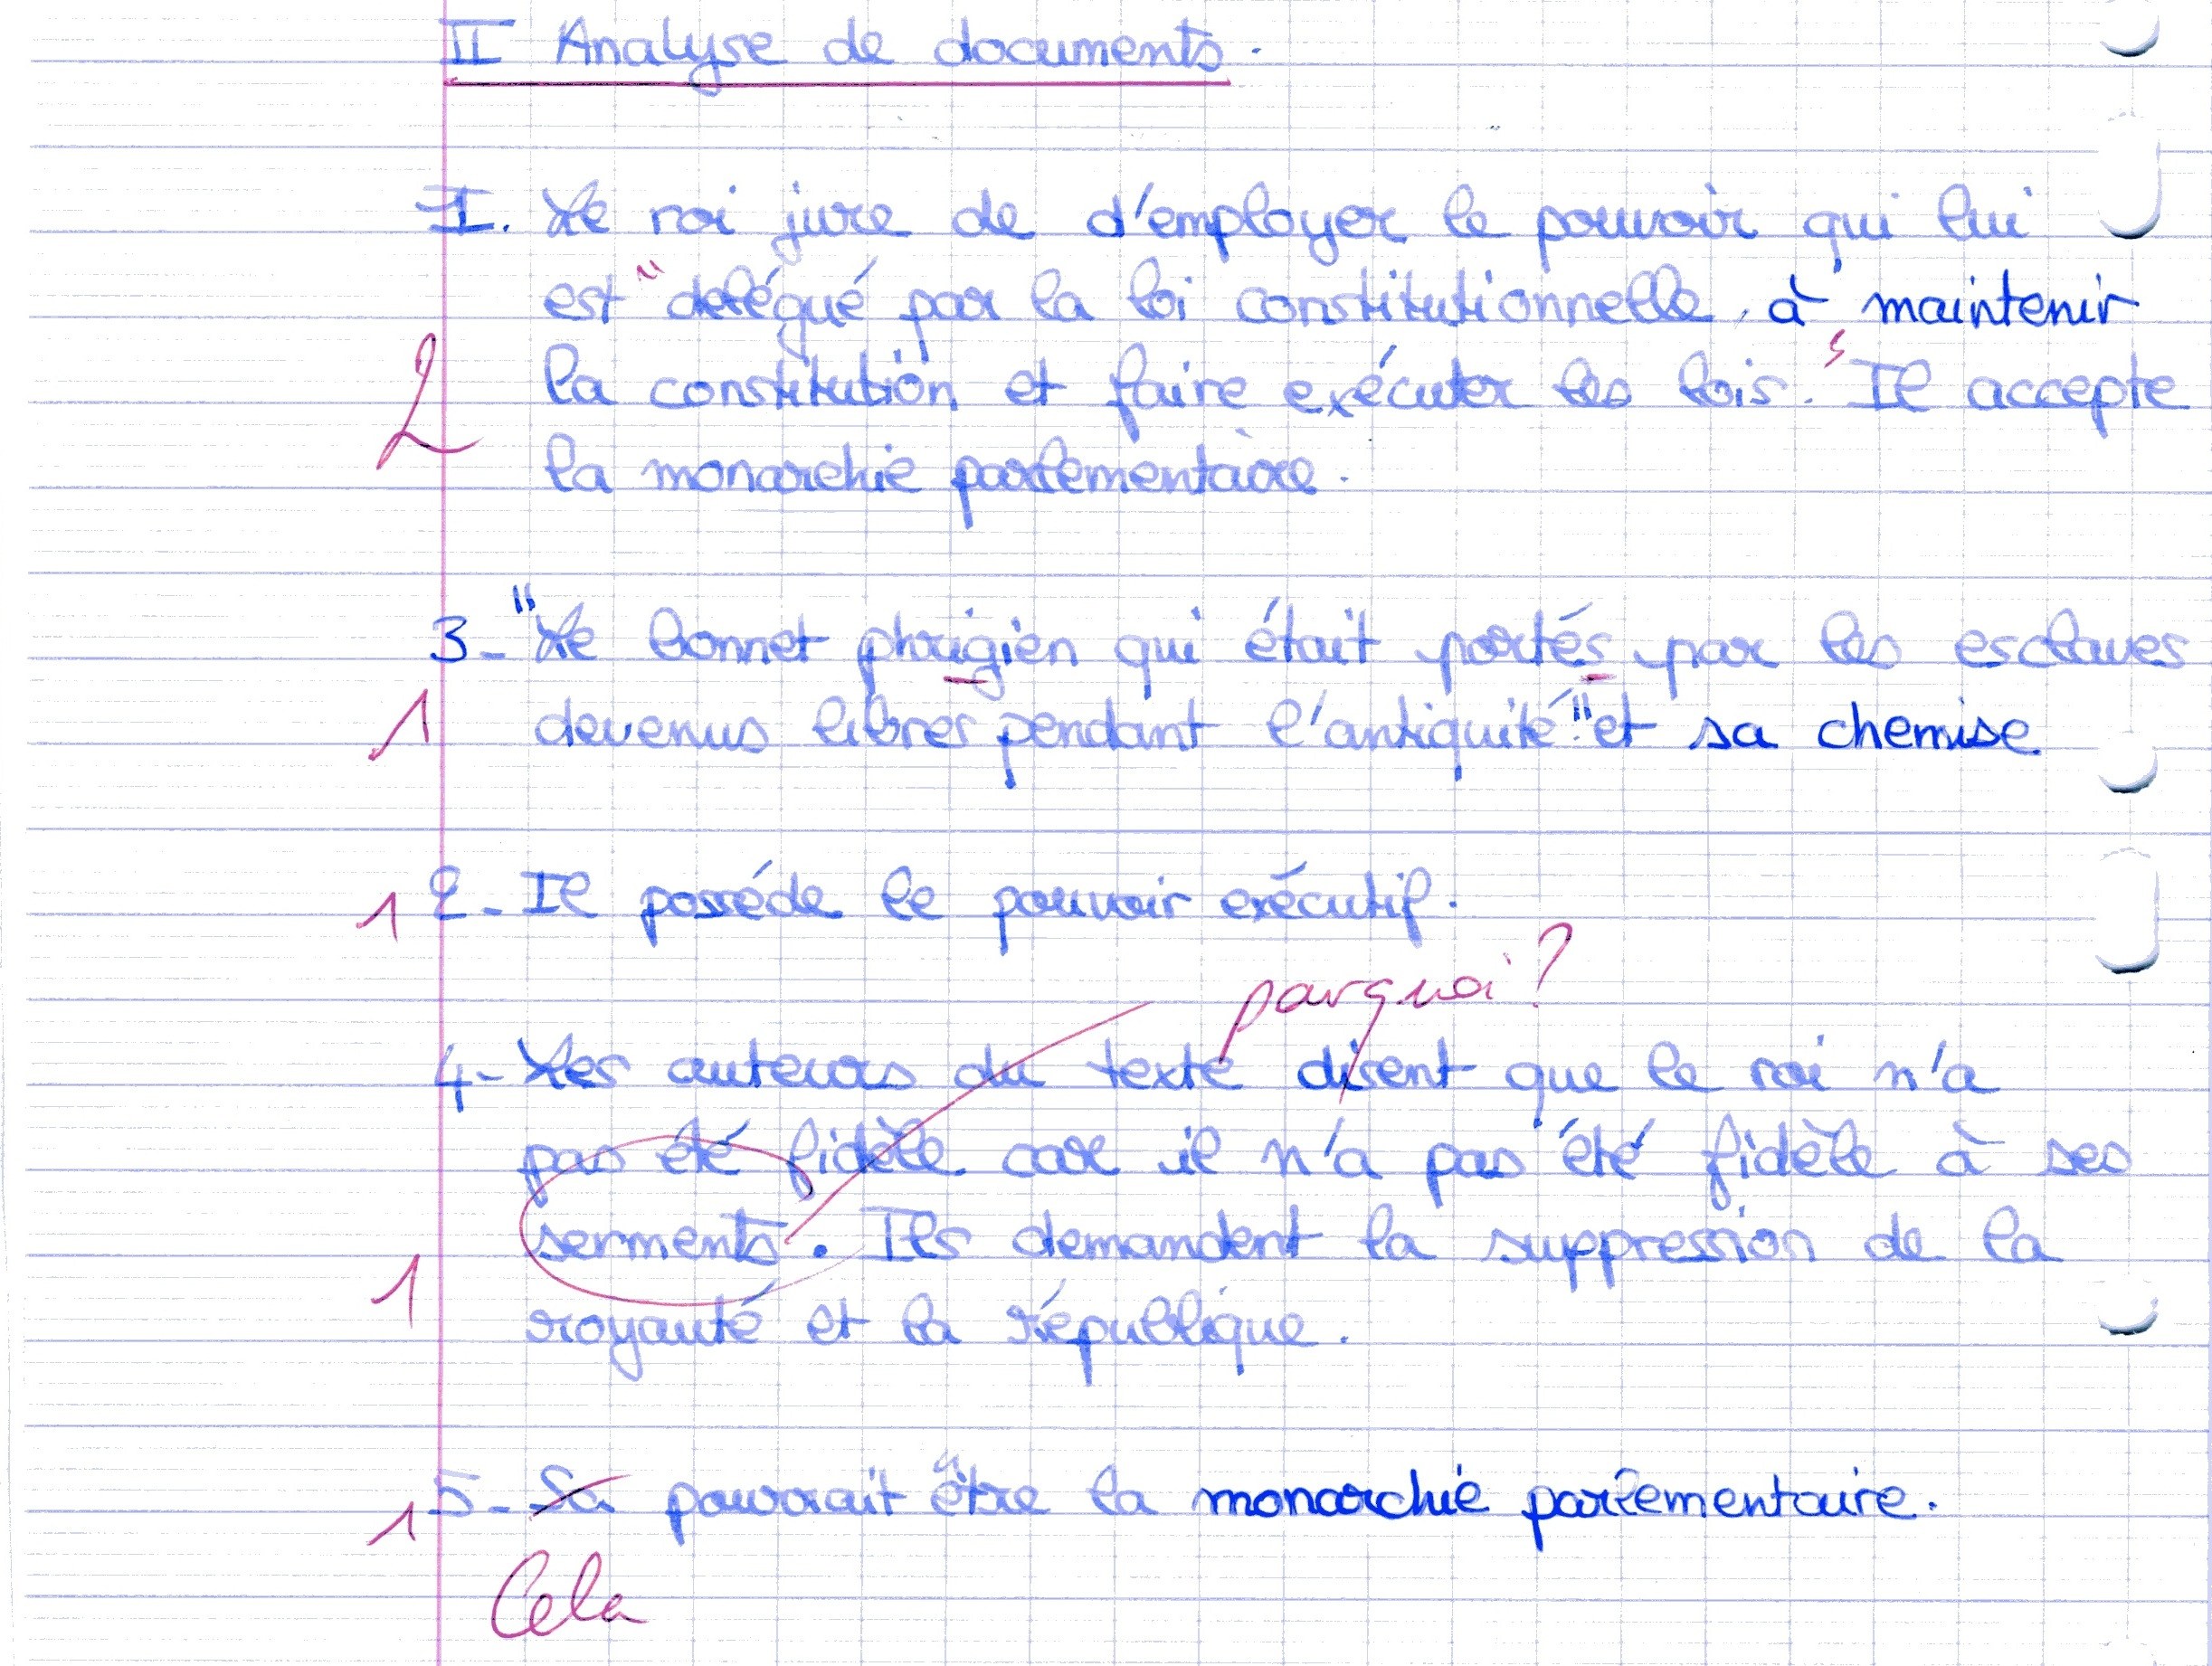 II Analyse de documents.
1. Le roi jure de d'employer le pouvoir qui lui
est "délégué par la loi constitutionnelle, à maintenir
2 la constitution et faire exécuter les lois." Il accepte
la monarchie parlementaire.
3- "Le bonnet phrigien qui était portés par les esclaves
1 devenus libres pendant l'antiquité" et sa chemise
1 2- Il posséde le pouvoir exécutif.
pourquoi ?
4- Les auteurs du texte disent que le roi n'a
pas été fidèle car il n'a pas été fidèle à ses
serments. Ils demandent la suppression de la
1 royauté et la république.
1 5- Sa pourrait être la monarchie parlementaire.
Cela